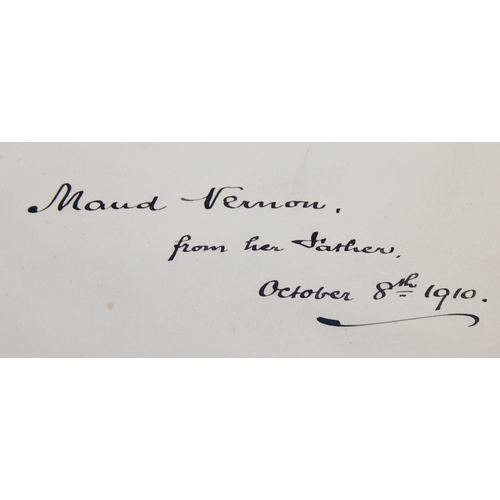 Maud Vernon.
from her Father.
October 8th 1910.